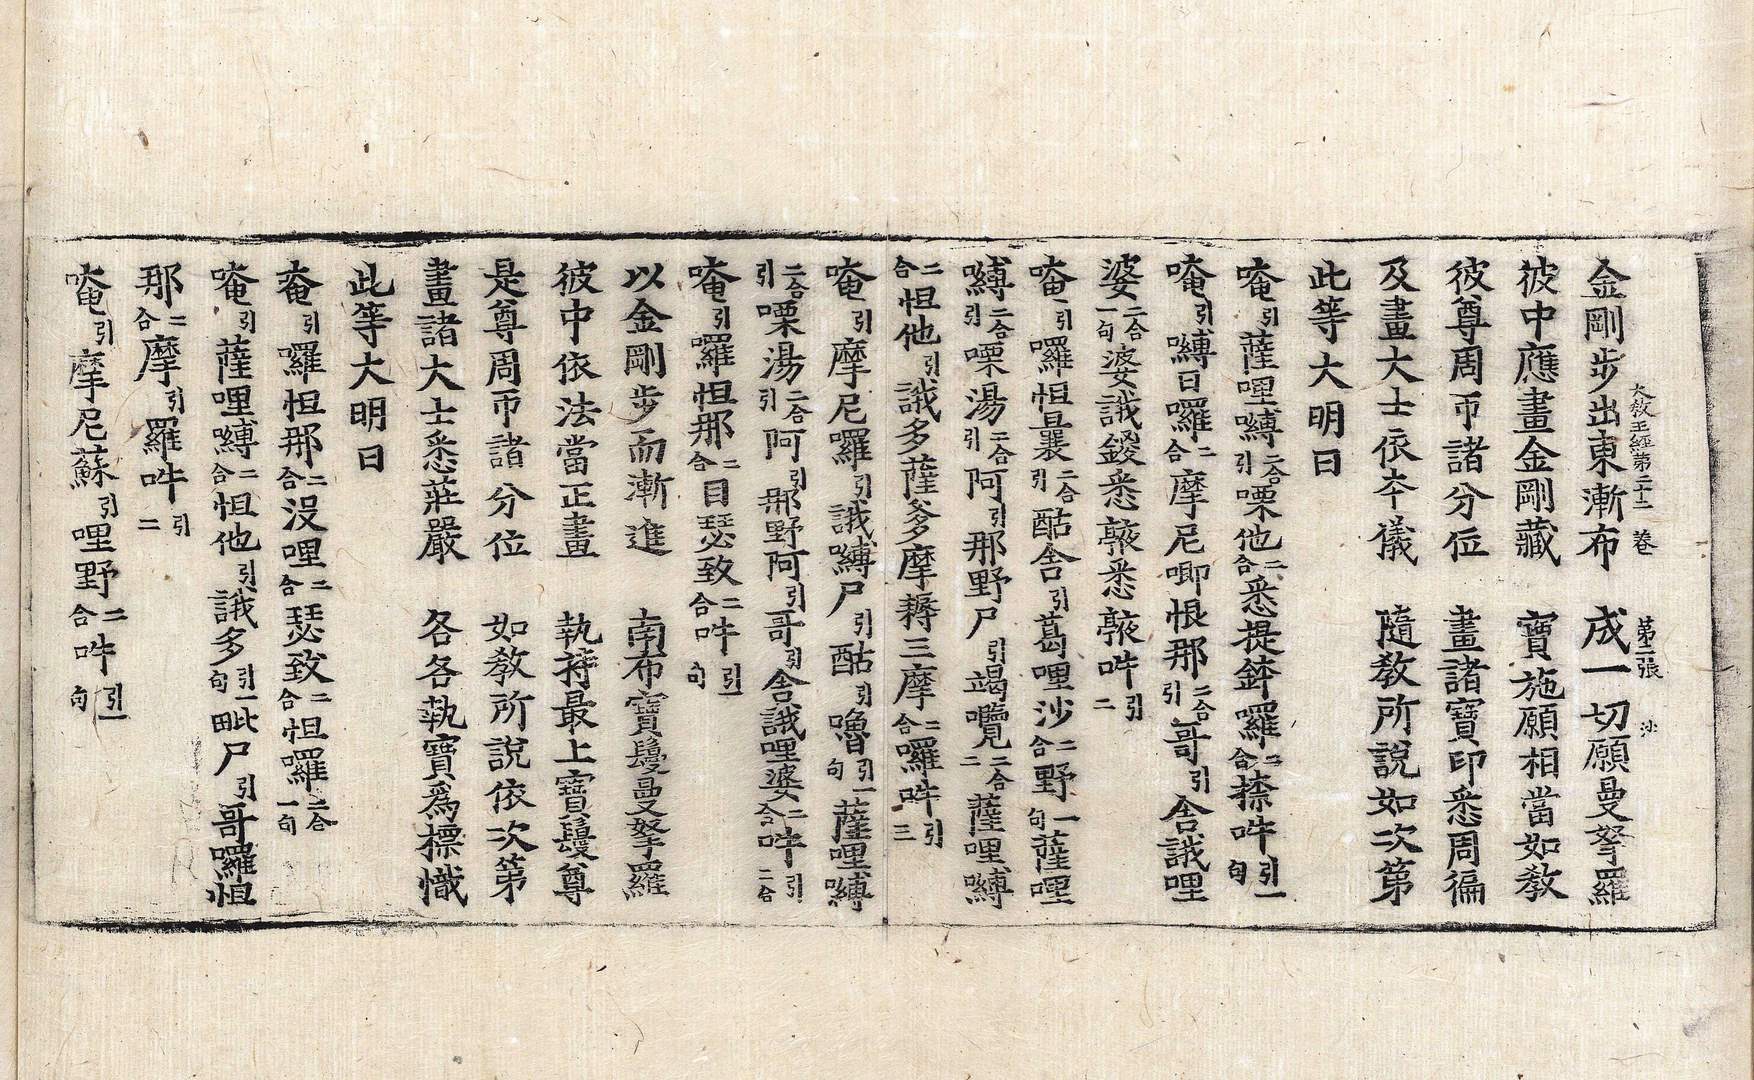 大教王經第二十二卷　第二張　沙
金剛步出東漸布　成一切願曼拏羅
彼中應畫金剛藏　寶施願相當如教
彼尊周帀諸分位　畫諸寶印悉周徧
及畫大士依本儀　隨教所說如次第
此等大明曰
唵引薩哩嚩二合引㗚他二合悉提鉢囉二合捺吽引一句
唵引嚩日囉二合摩尼唧悵那二合引哥引舍誐哩
婆二合一句婆誐鑁悉𤚥悉𤚥吽引二
唵引囉怛曩二合引酤舍引葛哩沙二合野一句薩哩
嚩二合引㗚湯二合引阿引那野尸引竭囕二合二薩哩嚩
二合怛他引誐多薩爹摩耨三摩二合囉吽引三
唵引摩尼囉引誐嚩尸引酤引嚕引一句薩哩嚩
二合引㗚湯二合引阿引那野阿引哥引舍誐哩婆二合吽引二合
唵引囉怛那二合目瑟致二合吽引一句
以金剛步而漸進　南布寶鬘曼拏羅
彼中依法當正畫　執持最上寶鬘尊
是尊周帀諸分位　如教所說依次第
畫諸大士悉莊嚴　各各執寶爲標幟
此等大明曰
唵引囉怛那二合沒哩二合瑟致二合怛囉二合一句
唵引薩哩嚩二合怛他引誐多引一句毗尸引哥囉怛
那二合摩引羅吽引二
唵引摩尼蘇引哩野二合吽引一句